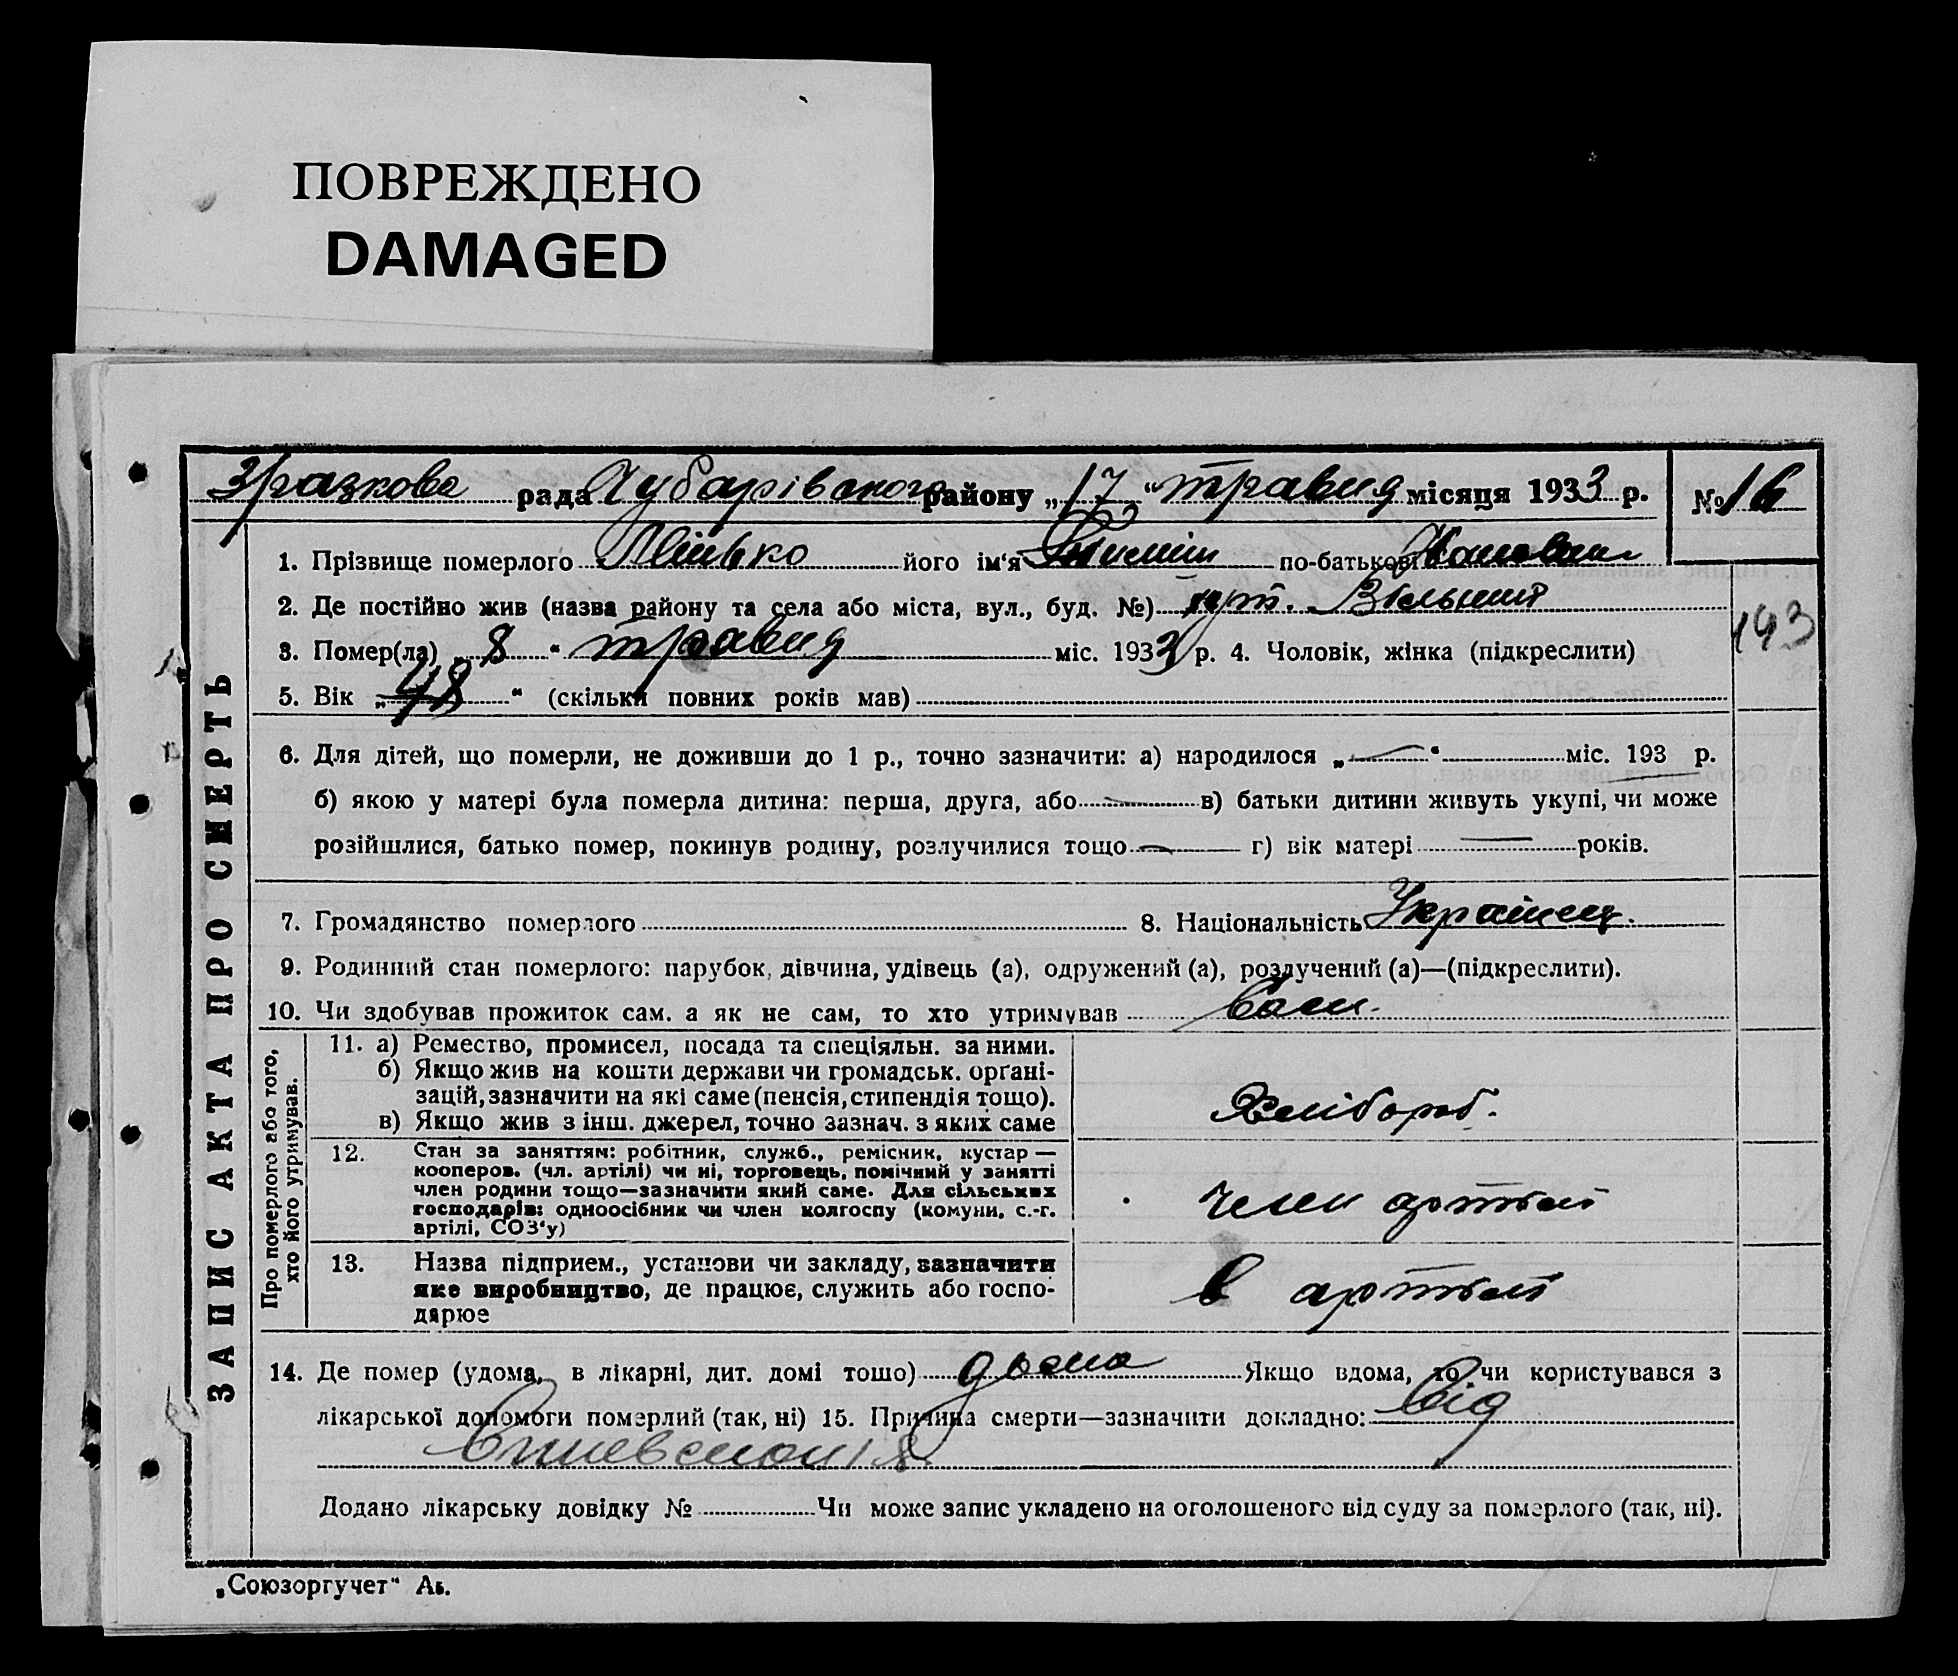 ПОВРЕЖДЕНО
DAMAGED
Зразкова рада Чубарівського району „17“ травня місяця 1933 р. № 16
1. Прізвище померлого його ім‘я по-батькові
2. Де постійно жив (назва району та села або міста, вул., буд. №) Вільний
193
3. Помер(ла) „8“ травня міс. 1933 р. 4. Чоловік, жінка (підкреслити)
5. Вік „48“ (скільки повних років мав)
6. Для дітей, що померли, не доживши до 1 р., точно зазначити: а) народилося „—“ міс. 193 р.
б) якою у матері була померла дитина: перша, друга, або — в) батьки дитини живуть укупі, чи може
розійшлися, батько помер, покинув родину, розлучилися тощо — г) вік матері — років.
7. Громадянство померлого 8. Національність Українец.
9. Родинний стан померлого: парубок, дівчина, удівець (а), одружений (а), розлучений (а)—(підкреслити).
10. Чи здобував прожиток сам. а як не сам, то хто утримував Сам.
ЗАПИС АКТА ПРО СМЕРТЬ
Про померлого або того,
хто його утримував.
11. а) Ремество, промисел, посада та спеціяльн. за ними.
б) Якщо жив на кошти держави чи громадськ. органі-
зацій, зазначити на які саме (пенсія, стипендія тощо).
в) Якщо жив з інш. джерел, точно зазнач. з яких саме
Хлібороб.
12. Стан за заняттям: робітник, служб., ремісник, кустар—
кооперов. (чл. артілі) чи ні, торговець, помічний у занятті
член родини тощо—зазначити який саме. Для сільських
господарів: одноосібник чи член колгоспу (комуни, с.-г.
артілі, СОЗ‘у)
член артілі
13. Назва підприєм., установи чи закладу, зазначити
яке виробництво, де працює, служить або госпо-
дарює
в артілі
14. Де помер (удома, в лікарні, дит. домі тошо) дома Якщо вдома, то чи користувався з
лікарської допомоги померлий (так, ні) 15. Причина смерти—зазначити докладно: від
Додано лікарську довідку № Чи може запис укладено на оголошеного від суду за померлого (так, ні).
„Союзоргучет“ Аь.